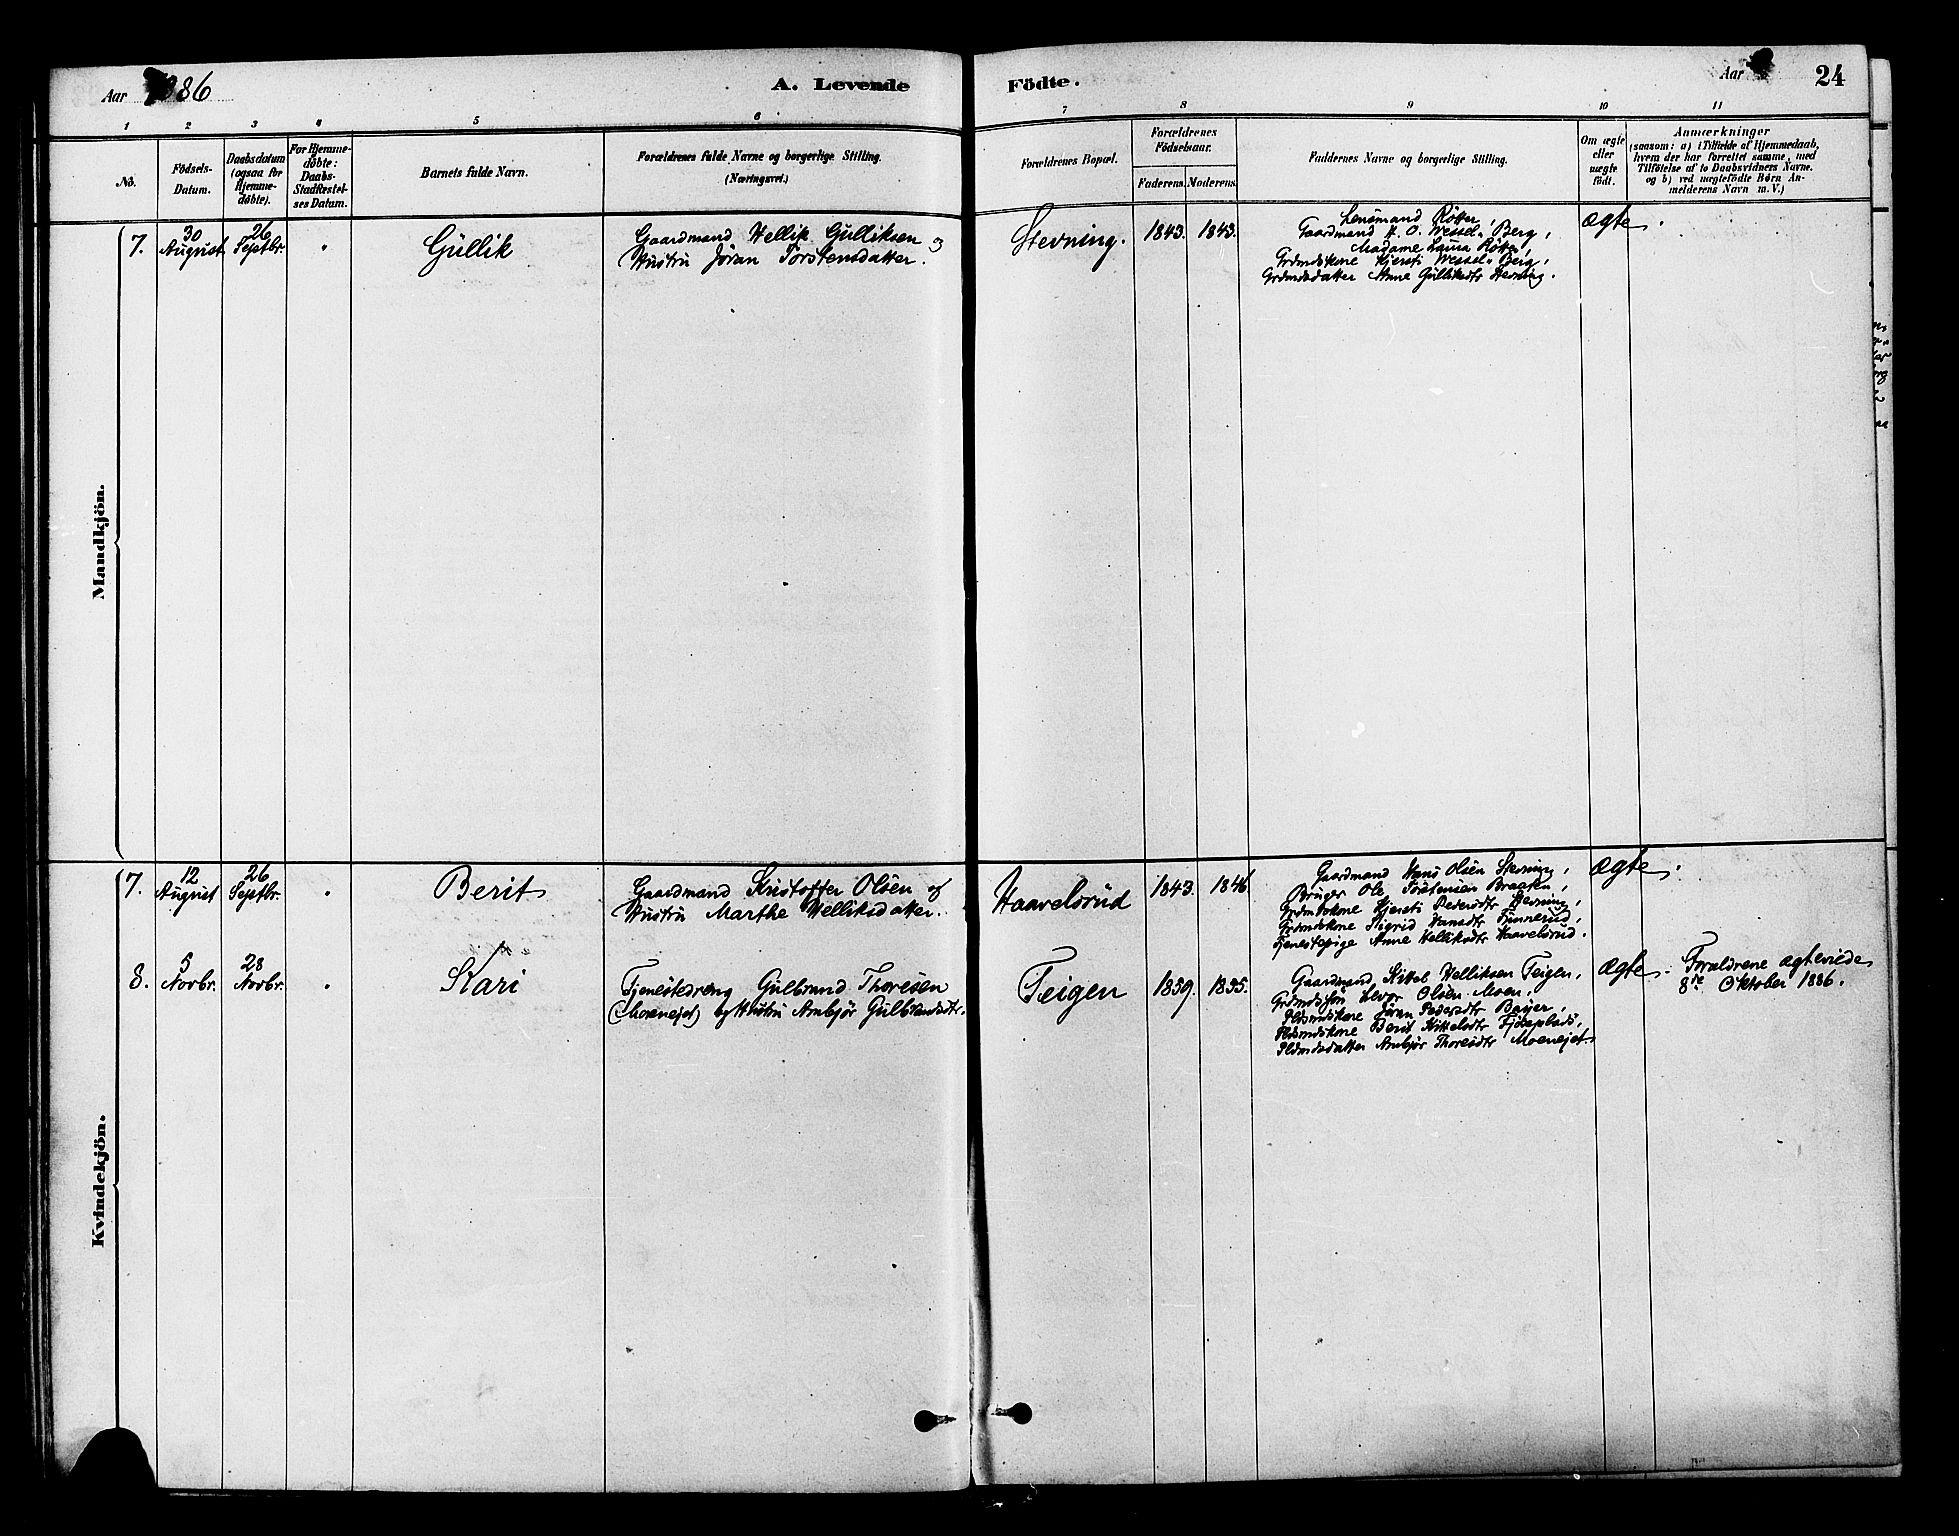 Aar 1886 A. Levende Födte. Aar 24
1 2 3 4 5 6 7 8 9 10 11
No.
Födsels-
Datum.
Daabsdatum
(ogsaa for
Hjemme-
döbte).
For Hjemme-
döbte:
Daabs-
Stadfæstel-
ses Datum.
Barnets fulde Navn.
Forældrenes fulde Navne og borgerlige Stilling.
(Næringsvei.)
Forældrenes Bopæl.
Forældrenes
Födselsaar.
Faderens. Moderens.
Faddernes Navne og borgerlige Stilling.
Om ægte
eller
uægte
födt.
Anmærkninger
(saasom: a) i Tilfælde af Hjemmedaab,
hvem der har forrettet samme, med
Tilföielse af to Daabsvidners Navne.
og b) ved uægtefödte Börn An-
melderens Navn m. V.)
Mandkjön.
7.
30
August
26
Septbr.
"
Gullik
Gaardmand Hellik Gulliksen og
Hustru Jöran Torstensdatter.
Stevning.
1843. 1843.
Lensmand Røtter,
Gaardmand H. O. Wessel-Berg,
Madame Laura Røtter,
Grdmdskone Kjersti Wessel-Berg,
Grdmdsdatter Anne Gulliksdtr Stevning.
ægte.
Kvindekjön.
7.
12
August
26
Septbr.
"
Berit
Gaardmand Kristoffer Olsen og
Hustru Marthe Helliksdatter.
Haavelsrud
1843. 1846.
Gaardmand Hans Olsen Stevning,
Bruger Ole Torstensen Braaten,
Grdmdskone Kjersti Pedersdtr Stevning,
Grdmdskone Sigrid Hansdtr Finnerud,
Tjenestepige Anne Helliksdtr Haavelsrud.
ægte.
8.
5
Novbr.
28
Novbr.
"
Kari
Tjenestedreng Gulbrand Thoresen
(Moenejet) og Hustru Ambjör Gulbrandsdtr.
Teigen
1859. 1835.
Gaardmand Kittel Helliksen Teigen,
Grdmdssøn Levor Olsen Moen,
Pldsmdskone Jöran Pedersdtr Beijer,
Pldsmdskone Berit Kittelsdtr
Pldmdsdatter Ambjør Thoresdtr Moenejet.
ægte.
Forældrene ægteviede
8de Oktober 1886.